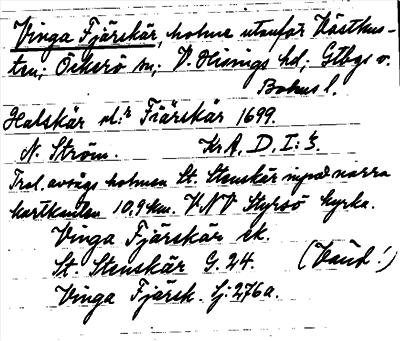 Vinga Fjärskär, holme utanför Västkus-
ten; Öckerö sn; V. Hisings hd; Gtbgs o.
Bohus l.
Halskär el:r Fiärskär 1699.
N. Ström. Kr A. D. I: 3.
Trol. avsågs holmen St. Stenskär inpå norra
kartkanten 10,9 km. VNV Styrsö kyrka.
Vinga Fjärskär ek.
St. Stenskär G. 24.
Vinga Fjärsk. Sj: 276a.